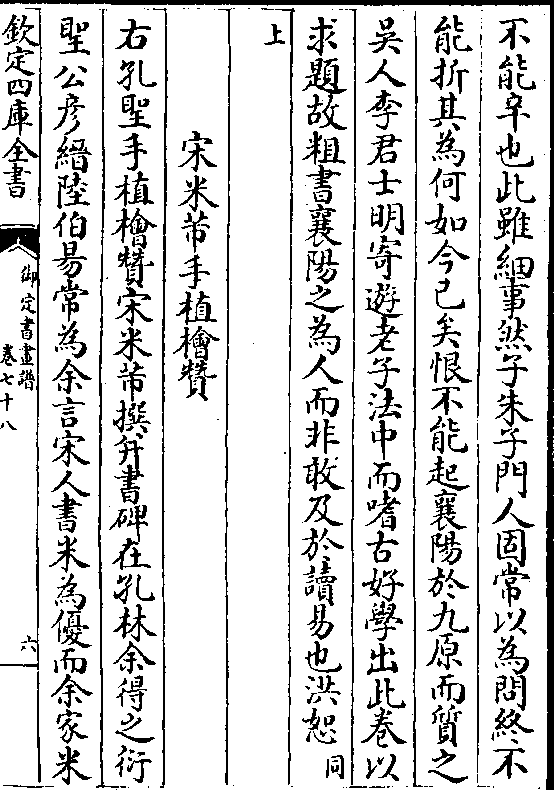 不能辛也此雖細事然子朱子門人固常以為問終不
能折其為何如今已矣恨不能起襄陽於九原而質之
吳人李君士明寄遊老子法中而嗜古好學出此卷以
求題故粗書襄陽之為人而非敢及於讀易也洪恕同
上
宋米芾手植檜贊
右孔聖手植檜贊宋米芾撰并書碑在孔林余得之衍
聖公彦縉陸伯易常為余言宋人書米為優而余家米
欽定四庫全書
御定書畫譜
卷七十八
六